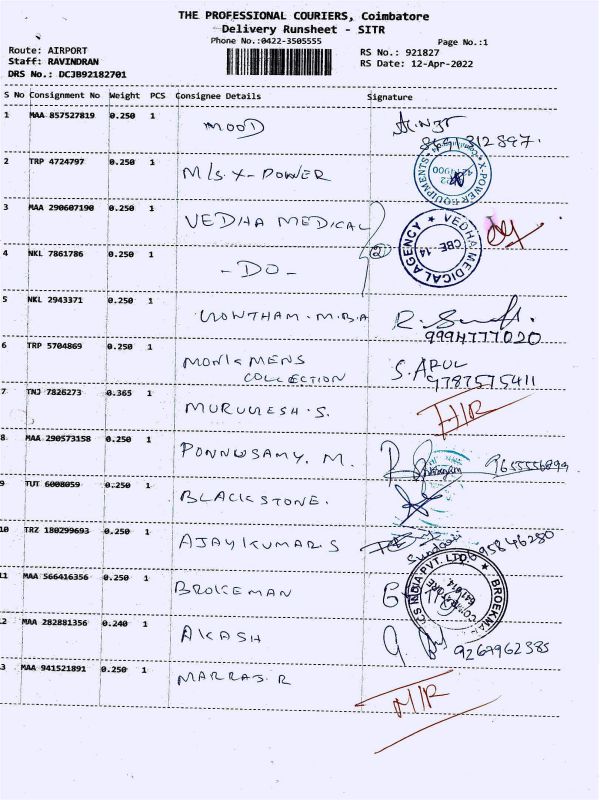 THE PROFESSIONAL COURIERS, Coimbatore
Delivery Runsheet - SITR
Phone No.:0422-3505555
Page No.:1
Route: AIRPORT
Staff: RAVINDRAN
DRS No.: DCJB92182701
RS No.: 921827
RS Date: 12-Apr-2022
S No Consignment No Weight PCS Consignee Details Signature
1 MAA 857527819 0.250 1 MOOD
2 TRP 4724797 0.250 1 M/S. X-POWER
X-POWER EQUIPMENTS
3 MAA 290607190 0.250 1 VEDHA MEDICAL
2
VEDHA MEDICAL AGENCY
CBE 14
4 NKL 7861786 0.250 1 -DO-
5 NKL 2943371 0.250 1 GOWTHAM.M.B.A
9994777020
6 TRP 5704869 0.250 1 MONK MENS
COLLECTION
S. ARUL
9787575411
7 TNJ 7826273 0.365 1 MURUGESH.S.
8 MAA 290573158 0.250 1 PONNUSAMY. M.
9655556899
9 TUT 6008059 0.250 1 BLACKSTONE.
10 TRZ 180299693 0.250 1 AJAYKUMAR S
11 MAA 566416356 0.250 1 BROKEMAN
COIMBATORE
641014
12 MAA 282881356 0.240 1 AKASH
9269962385
3 MAA 941521891 0.250 1
N/R